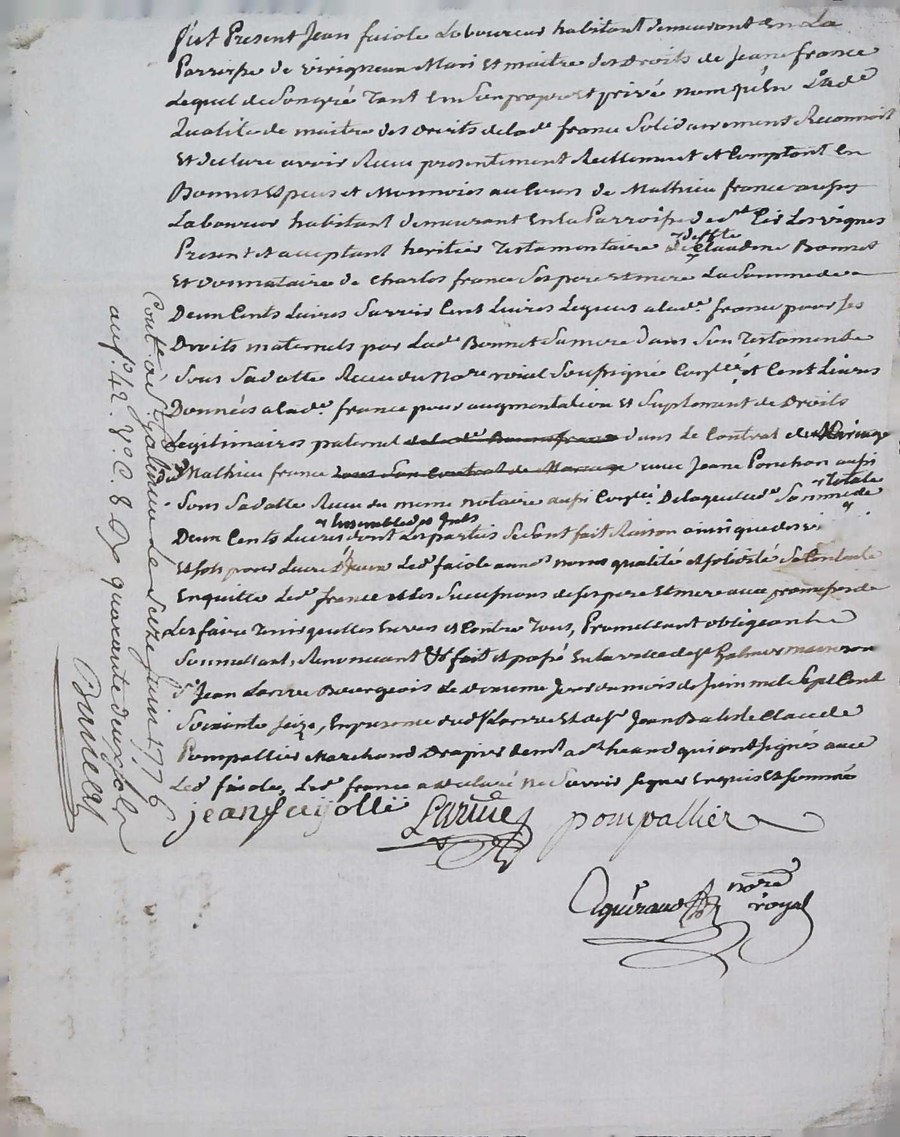 fut Present Jean faiole Laboureur habitant demeurant en La
Parroisse de virigneux Mari et maitre des Droits de Jeane france
Lequel de Son gré Tant En Son propre et privé nom qu'En La de
Qualité de maitre des droits de lad. france Solidairement Reconnoit
Et declare avoir Receu presentement Reellement et Comptant En
Bonnes Especes et Monnoies au Cours de Mathieu france aussy
Laboureur habitant demeurant En la Parroisse de St Cir Les vignes
Present et acceptant heritier Testamentaire de deffte Claudine Bonnet
Et donnataire de Charles france Ses pere Et mere La Somme de
Deux Cents Livres Savoir Cent Livres Leguées a lad. france pour Ses
Droits maternels par Lad. Bonnet Sa mere dans Son Testament
Sous Sa datte Receu du Nore roial Soussigné Conté et Cent Livres
Données a lad. france pour augmentation Et Suplement de Droits
Legitimaires paternel de lad. france dans Le Contrat de Mariage
dud. Mathieu france dans Son Contrat de Mariage avec Jeane Ponchon aussi
Sous Sa datte Receu du meme notaire aussi Conté De laquelle Somme totale de
Deux Cents Livres Ensemble des Ints dont Les parties Se Sont fait Raison ainsi que
Led. faiole aux noms qualité et solidité Se Contente
En quitte Led. france et les Successions de Ses pere Et mere avec promesse de
Les faire Tenir quittes Envers et Contre Tous, Promettant obligeant
Soumettant, Renonceant &a fait et passé En la ville de St Galmier maison
Sr Jean Larue Bourgeois Le dousieme Jour du mois de Juin mil Sept Cent
Soixante Seize, En presence dud. Sr Larue Et de Sr Jean Batiste Claude
Pompallier Marchand Drapier demt a St heand qui ont signés avec
Led. faiole, Led. france a declaré ne Savoir signer Enquis Et sommé
jean fayolle Larue pompallier
quiraud nore
royal
Conté a St galmier Le Seize juin 1776
au f. 42. Vo. C. 8 quarante deux sols